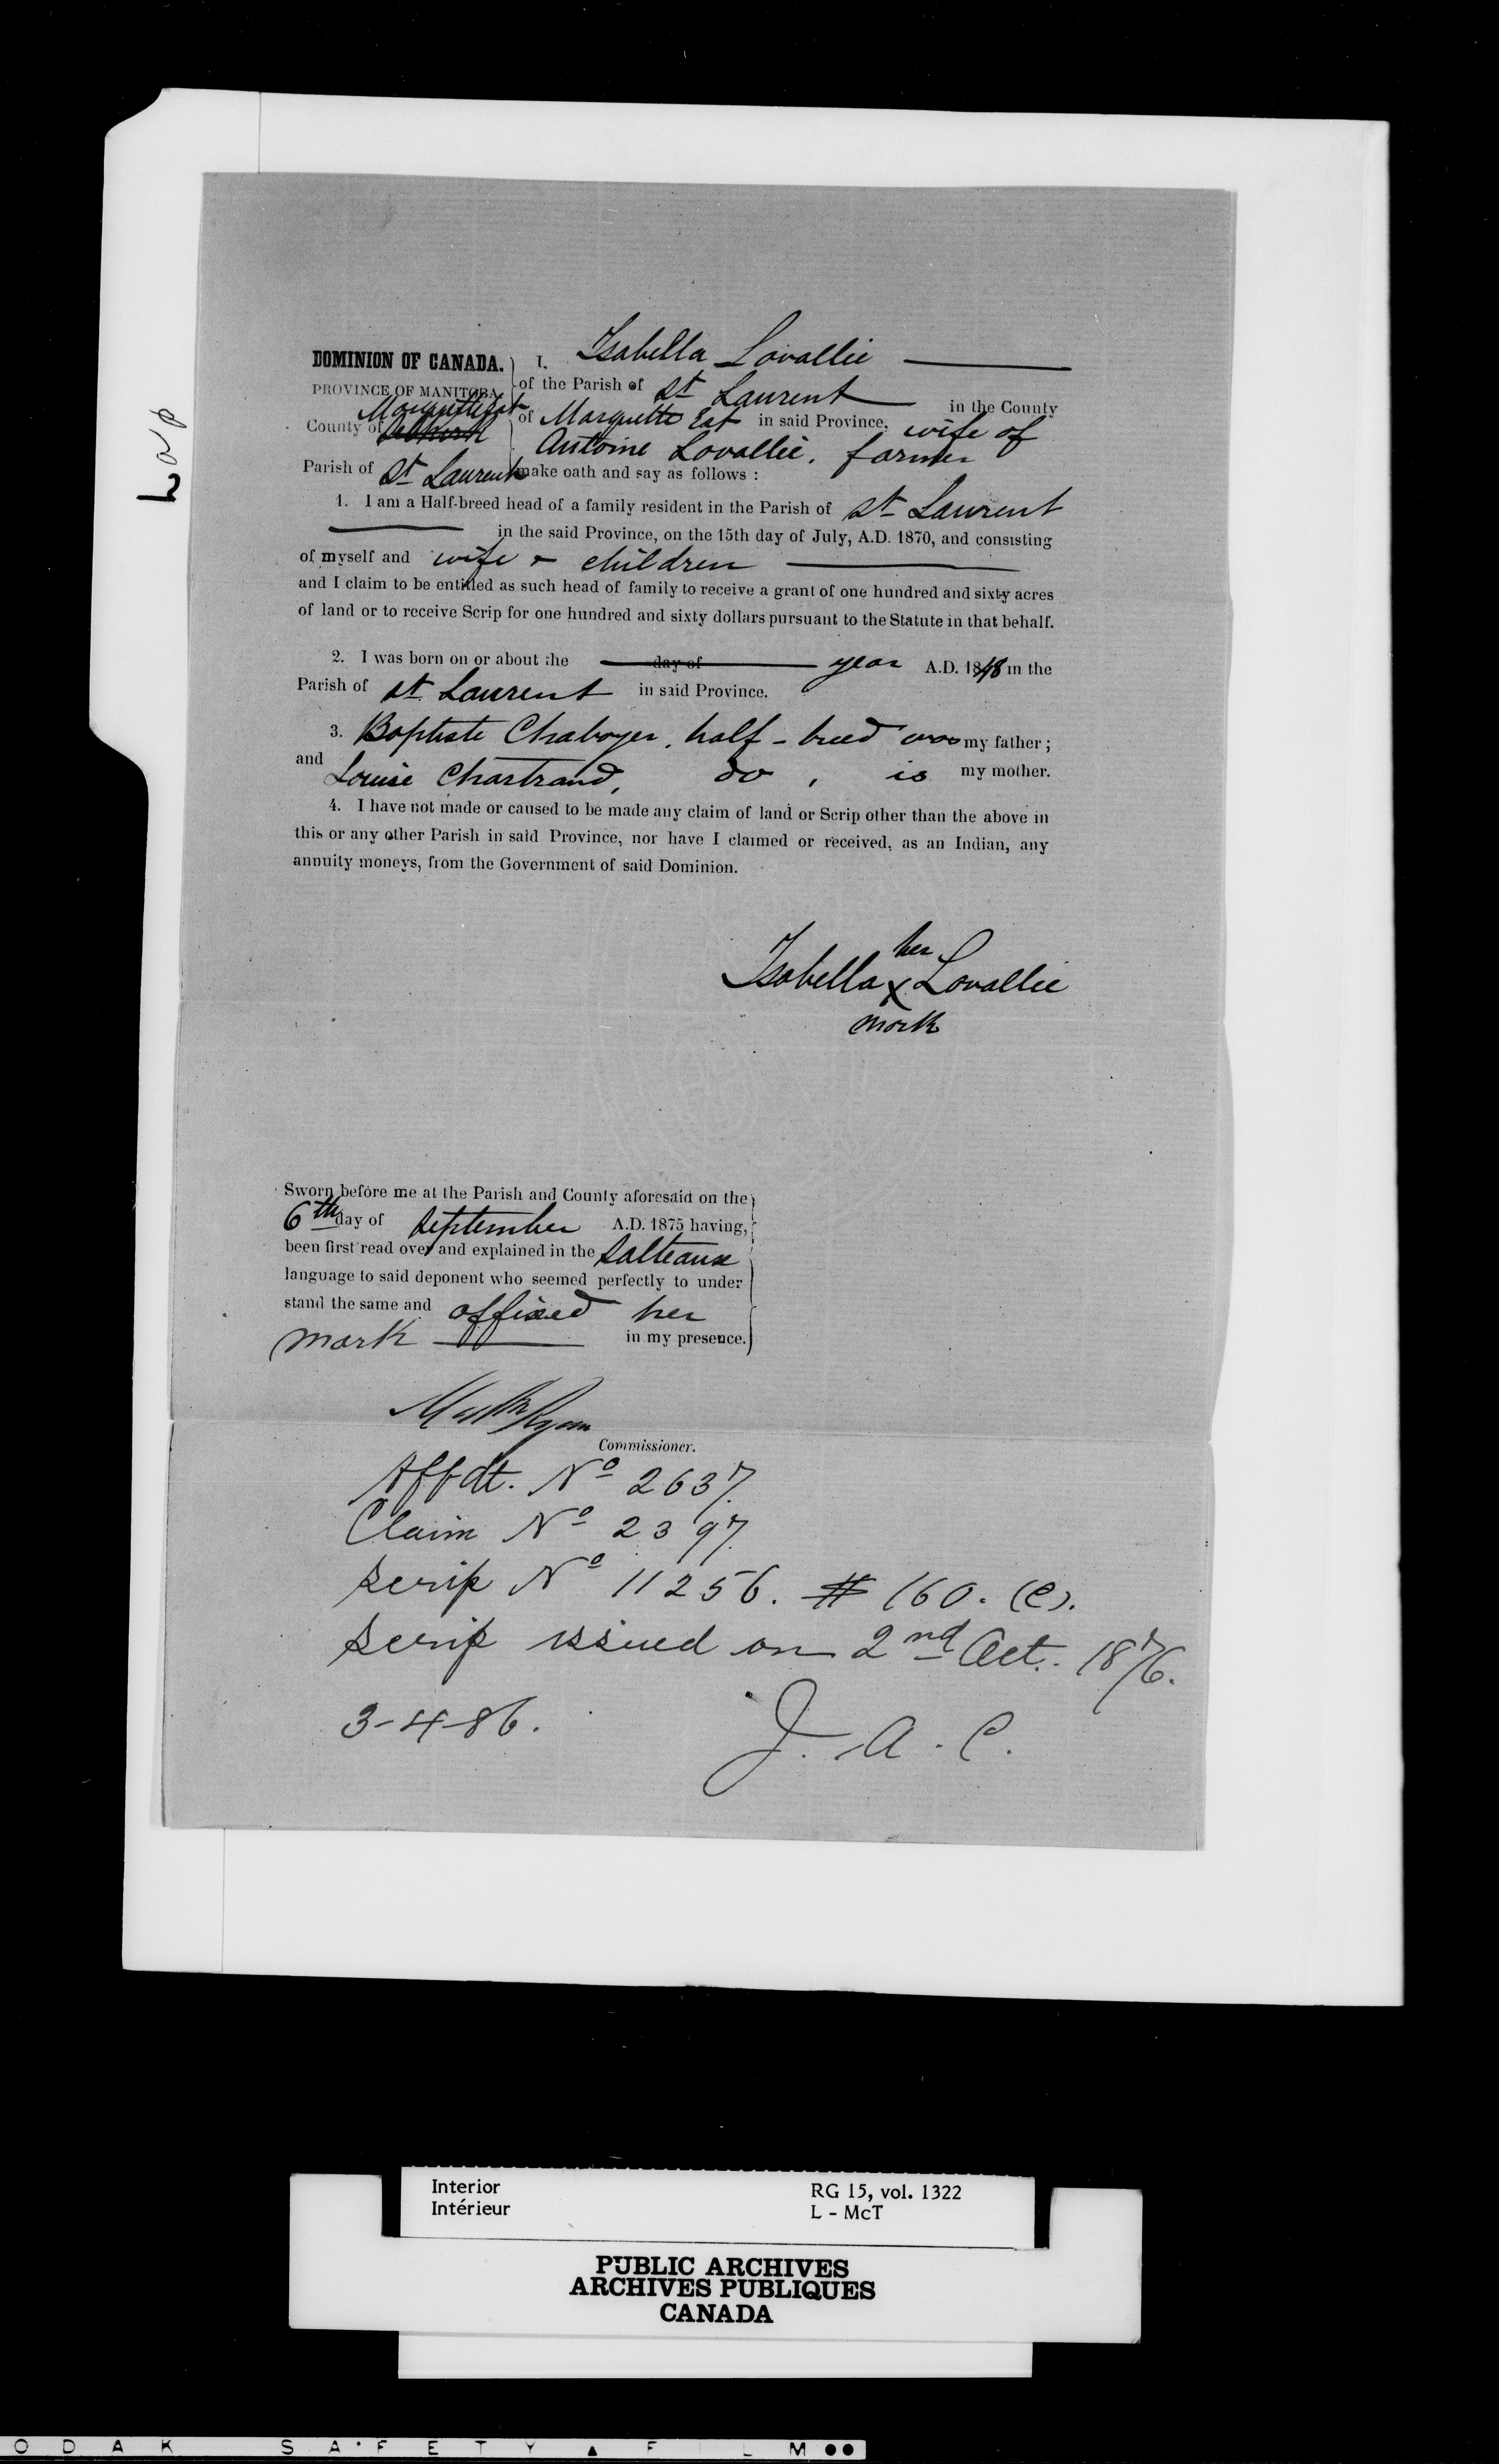 Lavp
DOMINION OF CANADA. I, Isabella Lavallie
PROVINCE OF MANITOBA of the Parish of St Laurent in the County
Marquette Est
County of of Marquette Est in said Province, wife of
Antoine Lavallie, farmer
Parish of St Laurent make oath and say as follows :
1. I am a Half-breed head of a family resident in the Parish of St Laurent
in the said Province, on the 15th day of July, A.D. 1870, and consisting
of myself and wife & children
and I claim to be entitled as such head of family to receive a grant of one hundred and sixty acres
of land or to receive Scrip for one hundred and sixty dollars pursuant to the Statute in that behalf.
2. I was born on or about the day of year A.D. 1848 in the
Parish of St Laurent in said Province.
3. Baptiste Chaboyer, half-breed was my father ;
and Louise Chartrand, do, is my mother.
4. I have not made or caused to be made any claim of land or Scrip other than the above in
this or any other Parish in said Province, nor have I claimed or received, as an Indian, any
annuity moneys, from the Government of said Dominion.
her
Isabella X Lavallie
mark
Sworn before me at the Parish and County aforesaid on the
6th day of September A.D. 1875 having,
been first read over and explained in the Salteaux
language to said deponent who seemed perfectly to under
stand the same and affixed her
mark in my presence.
Matt Ryan
Commissioner.
Affdt. No 2637.
Claim No 2397.
Scrip No 11256. $ 160. (C).
Scrip issued on 2nd Oct. 1876.
3-4-86. J. A. C.
Interior RG 15, vol. 1322
Intérieur L - McT
PUBLIC ARCHIVES
ARCHIVES PUBLIQUES
CANADA
ODAK SAFETY FILM